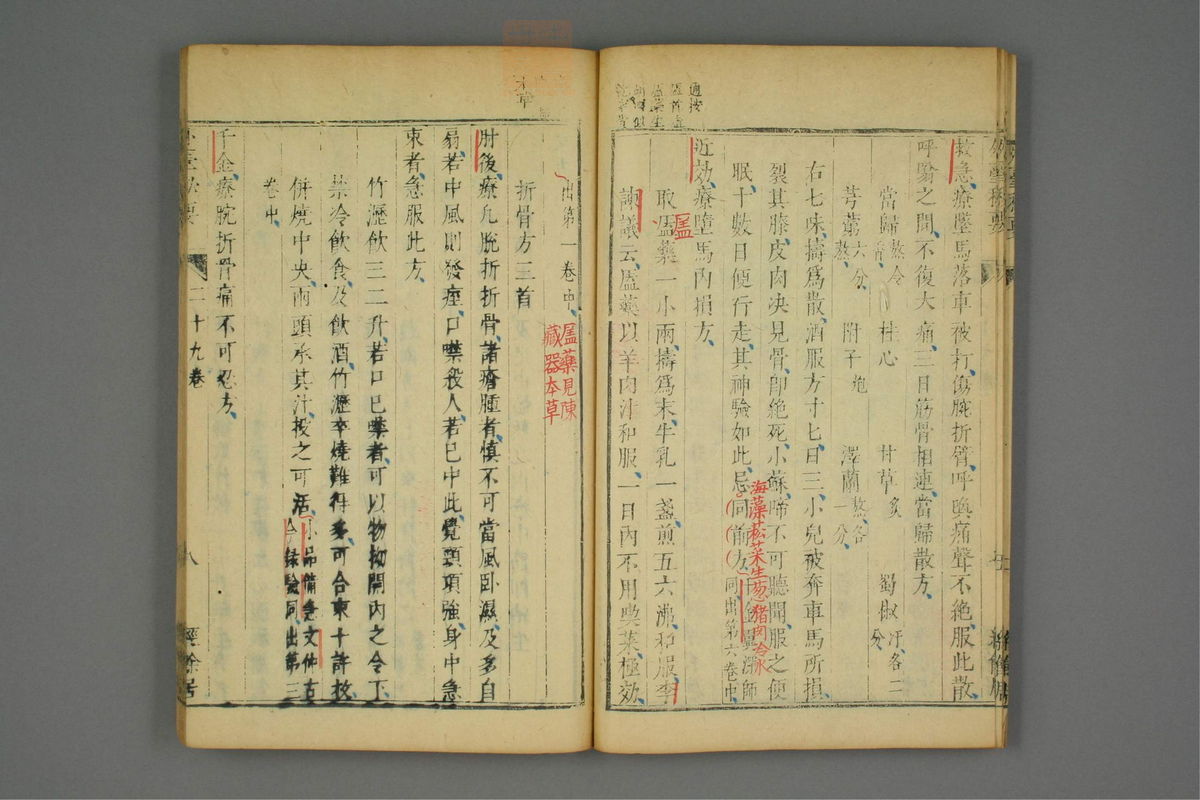 救急療墜馬落車被打傷腕折臂呼喚痛聲不絶服此散
呼吸之間不復大痛三日筋骨相連當歸散方
當歸熬令 桂心 甘草炙 蜀椒汗各二分
芎藭六分熬 附子炮 澤蘭熬各一分
右七味擣爲散酒服方寸匕日三小兒被奔車馬所損
裂其膝皮肉决見骨即絶死小蘇啼不可聽聞服之便
眠十數日便行走其神驗如此忌同前方千金翼深師同出第六卷中
海藻菘菜生葱猪肉冷水
近効療墮馬內損方
取䖏藥一小兩擣爲末牛乳一盞煎五六沸和服李
諫議云䖏藥以羊肉汁和服一日內不用喫菜極効
出第一卷中
藥見陳
藏器本草
折骨方三首
肘後療凡脕折折骨諸瘡腫者慎不可當風卧濕及多自
扇若中風則發痓口噤殺人若已中此覺頸項強身中急
束者急服此方
竹瀝飲三二升若口已噤者可以物拗開內之令下
禁冷飲食及飲酒竹瀝卒燒難得多可合束十許枚
併燒中央兩頭承其汁投之可活小品備急文仲古今録驗同出第三
卷中
千金療腕折骨痛不可忍方
三十九卷
八
經餘居